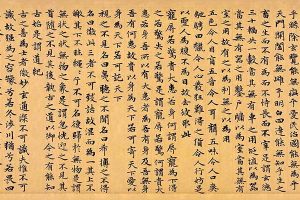 滌除玄覽能無疵乎愛民治國能無為乎
天門開闔能無雌乎明白四達能無知乎
生之畜之生而不有為而不恃長而不宰是謂玄德
三十輻共一轂當其無有車之用埏埴以為
器當其無有器之用鑿戶牖以為室當其無有
室用故有之以為利無之以為用
五色令人目盲五音令人耳聾五味令人口爽
馳騁田獵令人心發狂難得之貨令人行妨是
以聖人為腹不為目故去彼取此
寵辱若驚貴大患若身何謂寵辱寵為下得
之若驚失之若驚是謂寵辱若驚何謂貴大
患若身吾所以有大患者為吾有身及吾無
身吾有何患故貴以身為天下若可寄天下愛以
身為天下若可託天下
視之不見名曰夷聽之不聞名曰希搏之不得
名曰微此三者不可致詰故混而為一其上不
皦其下不昧繩繩兮不可名復歸於無物是謂
無狀之狀無物之象是謂惚恍迎之不見其首
隨之不見其後執古之道以御今之有能知
古始是謂道紀
古之善為士者微妙玄通深不可識夫惟不可
識故強為之容豫兮若冬涉川猶兮若畏四